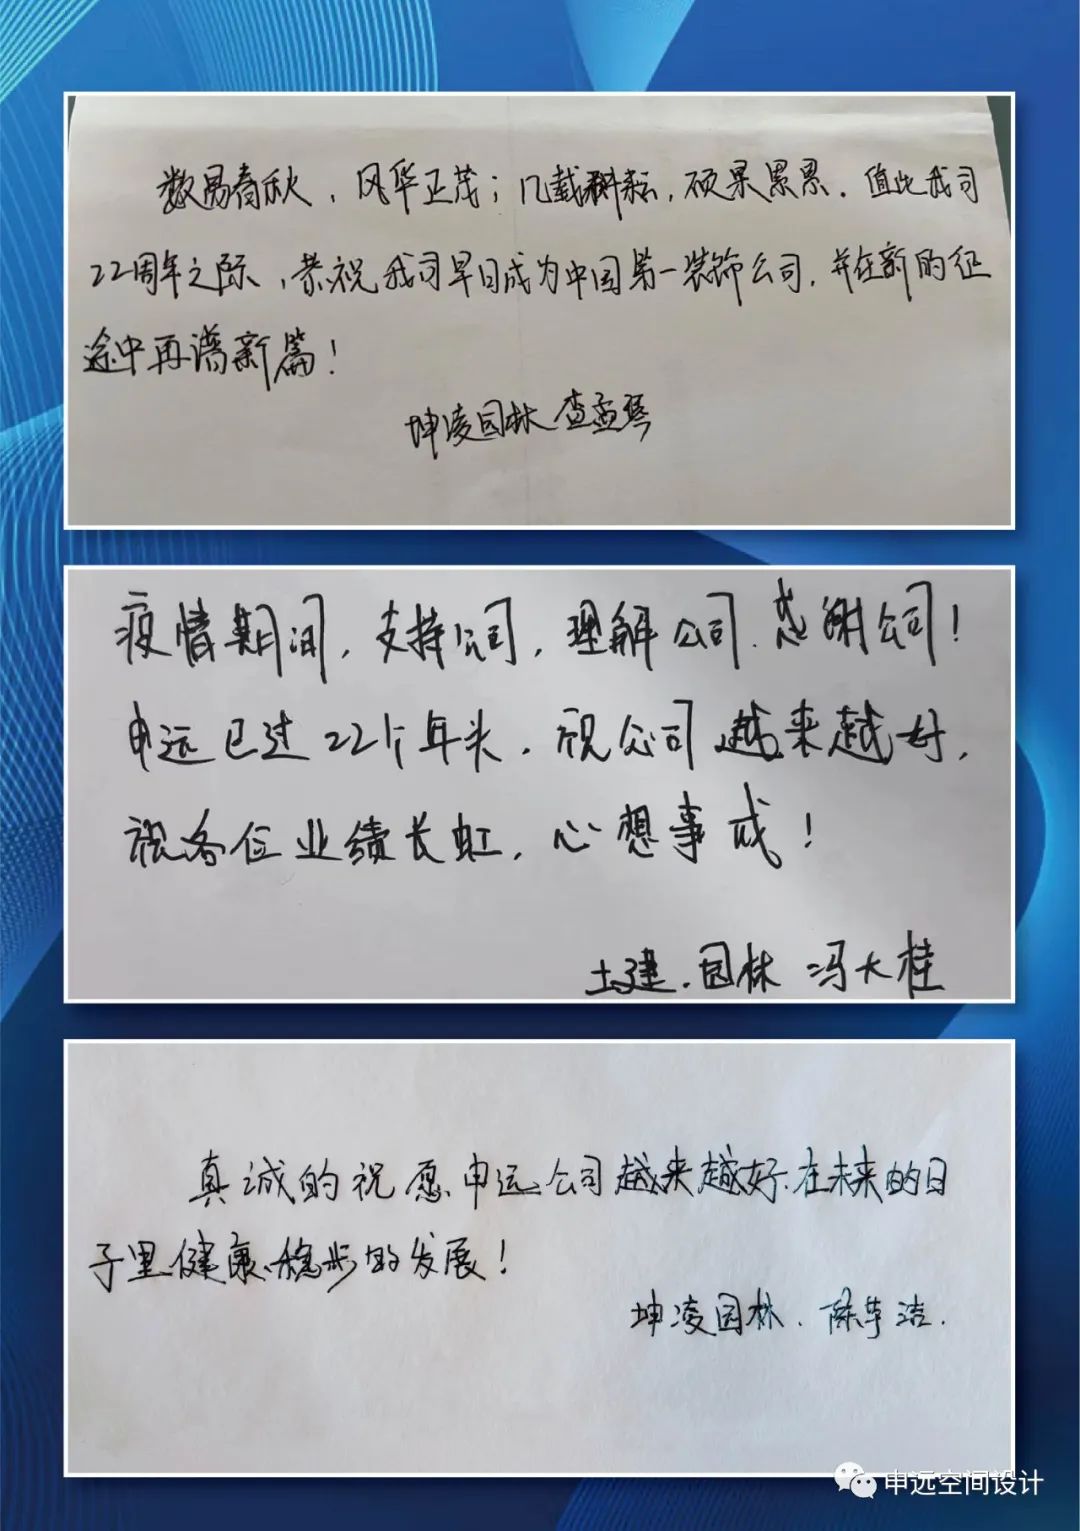 数易春秋，风华正茂；几载耕耘，硕果累累．值此我司
22周年之际，恭祝我司早日成为中国第一装饰公司，并在新的征
途中再谱新篇！
坤凌园林 查孟琴
疫情期间，支持公司，理解公司．感谢公司！
申远已过22个年头，祝公司越来越好，
祝各位业绩长虹，心想事成！
土建．园林 冯大桂
真诚的祝愿申远公司越来越好．在未来的日
子里健康、稳步的发展！
坤凌园林．陈华洁．
申远空间设计